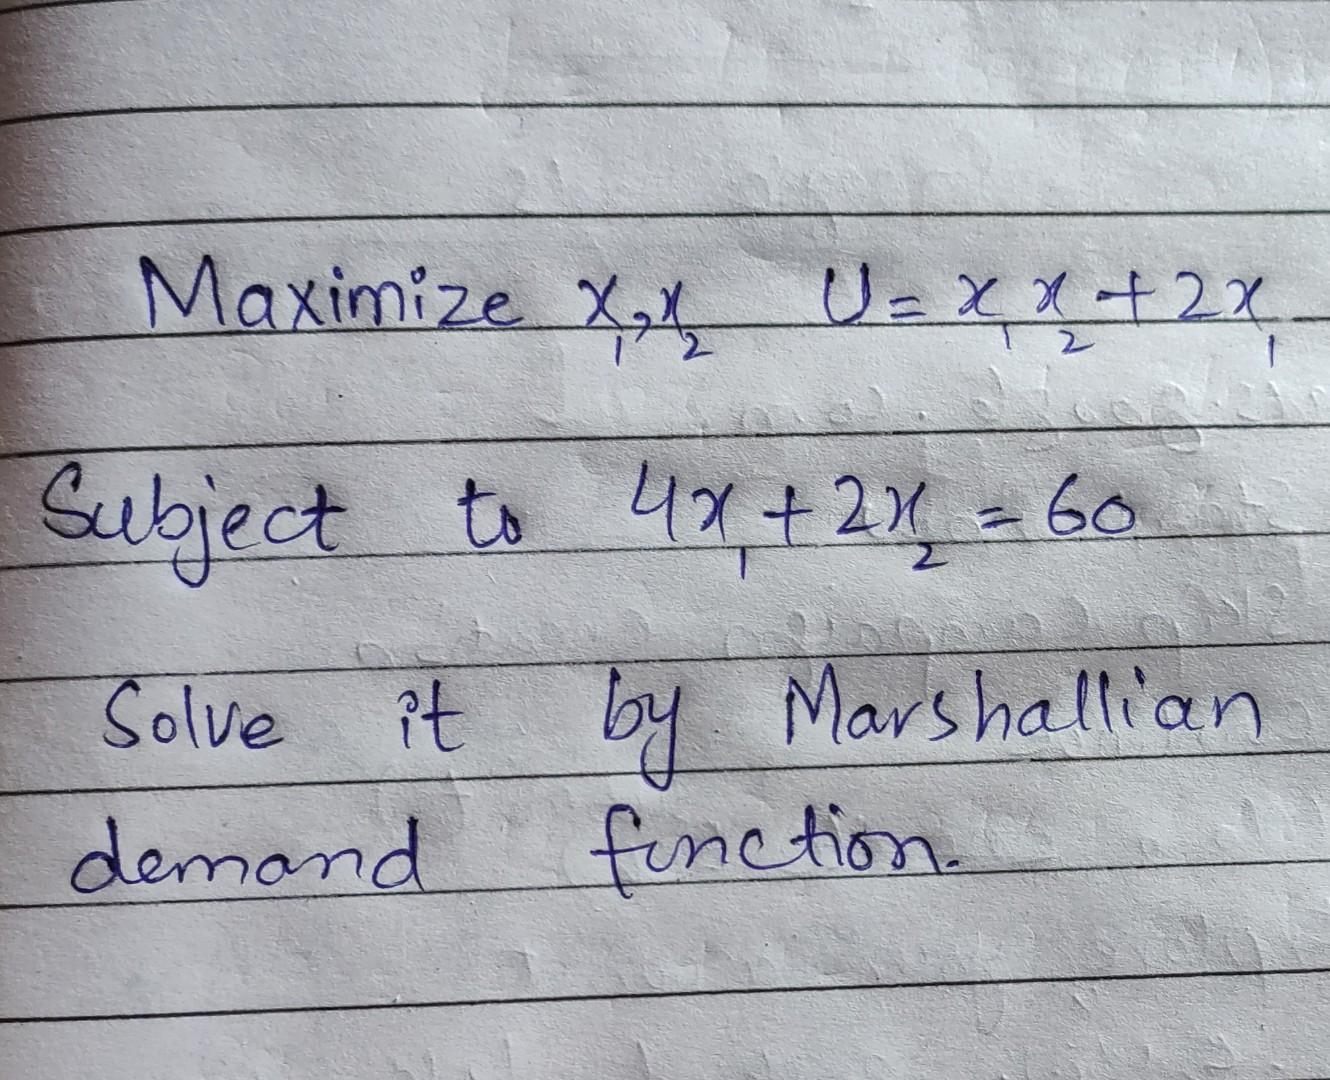 Maximize x₁,x₂ U = x₁x₂ + 2x₁
Subject to 4x₁ + 2x₂ = 60
Solve it by Marshallian
demand function.